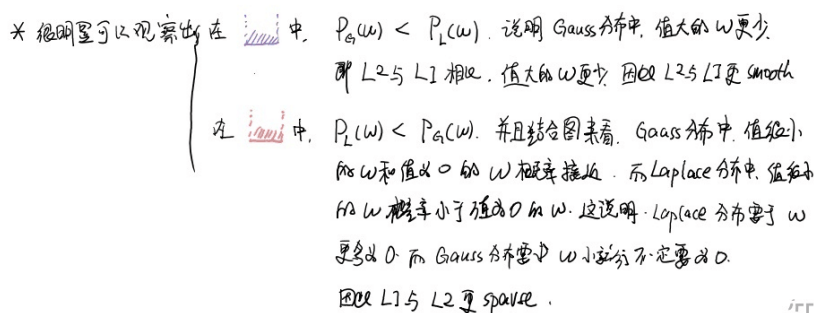 * 很明显可以观察出 在 中, P_G(w) < P_L(w). 说明 Gauss分布中, 值大的w更少.
即 L2与L1相比, 值大的w更少, 因此L2与L1更smooth
在 中, P_L(w) < P_G(w). 并且结合图来看, Gauss分布中, 值很小
的w和值为0的w概率接近. 而Laplace分布中, 值很小
的w概率小于值为0的w. 这说明. Laplace分布要于w
更多为0. 而Gauss分布要中w小就行不一定要为0.
因此L1与L2更sparse.